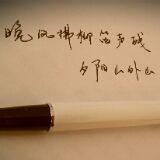 晚风拂柳笛声残
夕阳山外山